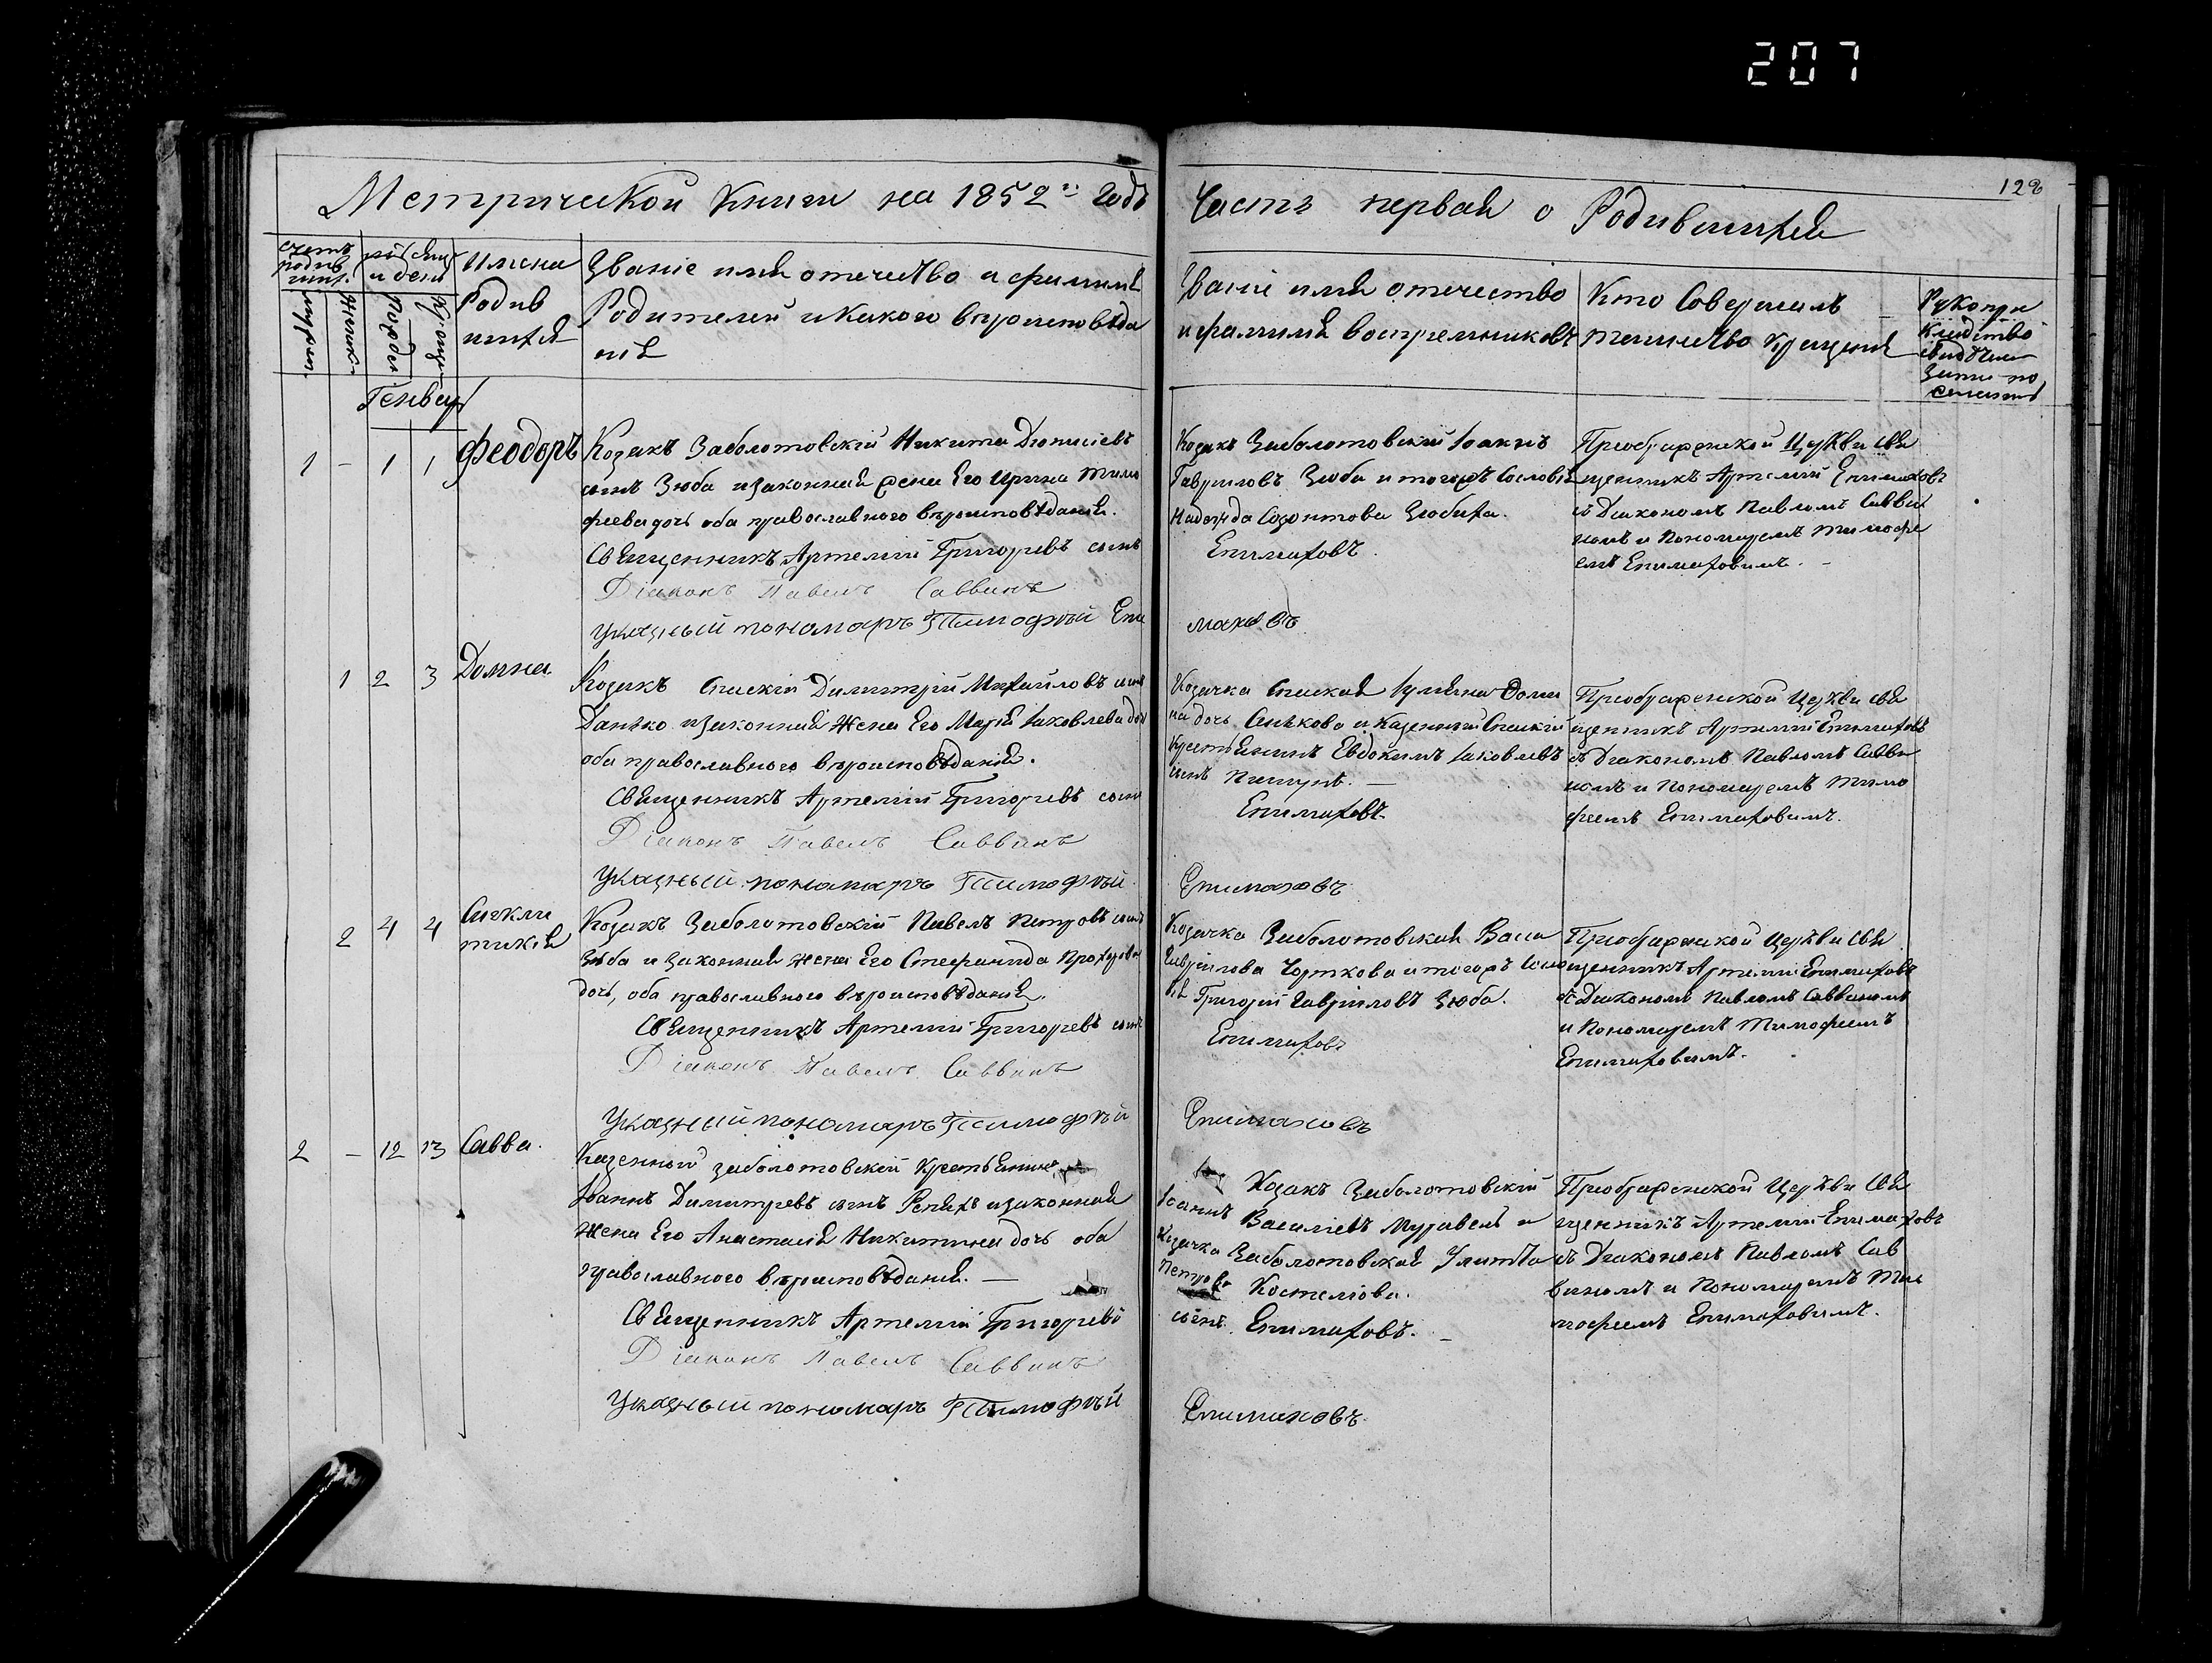 207
129
Метрической Книги на 1852й Годъ
Часть первая о Родившихся
счетъ родив ших.
мужеск.
женск.
месяцъ и день
Рожден
Креще
Имена Родив шихся
Званіе имя отечество и фамилія
Родителей и Какого вѣроисповѣда
нія
Званіе имя отечество
и фамилія воспремниковъ
Кто Совершалъ
таинство Крещенія
Рукопри
Кладство
свидѣтел
Записи по
желанію
Генвар
1 – 1 1 Феодоръ
Козакъ Заболотовскій Никита Діонисіевъ
сынъ Зюба и законная жена Его Ирина Тимо
феева дочь оба православнаго вѣроисповѣданія.
Священникъ Артемій Григорьевъ сынъ
Діаконъ Павелъ Саввинъ
Указный пономарь Тимофѣй Епи
Козакъ Заболотовскій Іоаннъ
Гавриловъ Зюба и тогожъ Сословія
Надежда Созонтова Зюбина.
Епимаховъ.
маховъ
Преображенской Церкви Свя
щенникъ Артемій Епимаховъ
съ Діакономъ Павломъ Савви
номъ и Пономаремъ Тимофе
емъ Епимаховымъ. –
1 2 3 Домна.
Козакъ Спаскій Димитрій Михайловъ сынъ
Данько и законная Жена Его Марія Іаковлева доч
оба православнаго вѣроисповѣданія.
Священникъ Артемій Григорьевъ сынъ
Діаконъ Павелъ Саввинъ
Указный пономарь Тимофѣй
Козачка Спаская
на дочь Сенькова и Казенный Спаский
Крестьянинъ Евдокимъ Іаковлевъ
сынъ
Епимаховъ.
Епимаховъ
Преображенской Церкви Свя
щенникъ Артемій Епимаховъ
съ Діакономъ Павломъ Савви
номъ и Пономаремъ Тимо
феемъ Епимаховымъ.
2 4 4 Сигкли
тикія
Козакъ Заболотовскій Павелъ Петровъ сынъ
Зюба и законная жена Его Стефанида Прохорова
дочь, оба православнаго вѣроисповѣданія.
Священникъ Артемій Григорьевъ сынъ
Діаконъ Павелъ Саввинъ
Указный пономарь Тимофѣй
Козачка Заболотовская Васса
Гаврилова Чорткова и тогожъ Сосло
вія Григорій Гавриловъ Зюба.
Епимаховъ
Епимаховъ
Преображенской Церкви Свя
щенникъ Артемій Епимаховъ
съ Діакономъ Павломъ Саввиномъ
и Пономаремъ Тимофеемъ
Епимаховымъ.
2 – 12 13 Савва.
Казенной заболотовской Крестьянинъ
Іоаннъ Димитріевъ сынъ Репяхъ и законная
жена Его Анастасія Никитина дочь оба
православнаго вѣроисповѣданія. –
Священникъ Артемій Григорьевъ
Діаконъ Павелъ Саввинъ
Указный пономарь Тимофѣй
Козакъ Заболотовскій
Іоаннъ Василіевъ Муравель и
Козачка Заболотовская Улита
Петрова Костелова.
сынъ. Епимаховъ. –
Епимаховъ.
Преображенской Церкви Свя
щенникъ Артемій Епимаховъ
съ Діакономъ Павломъ Сав
виномъ и Пономаремъ Ти
мофеемъ Епимаховымъ.